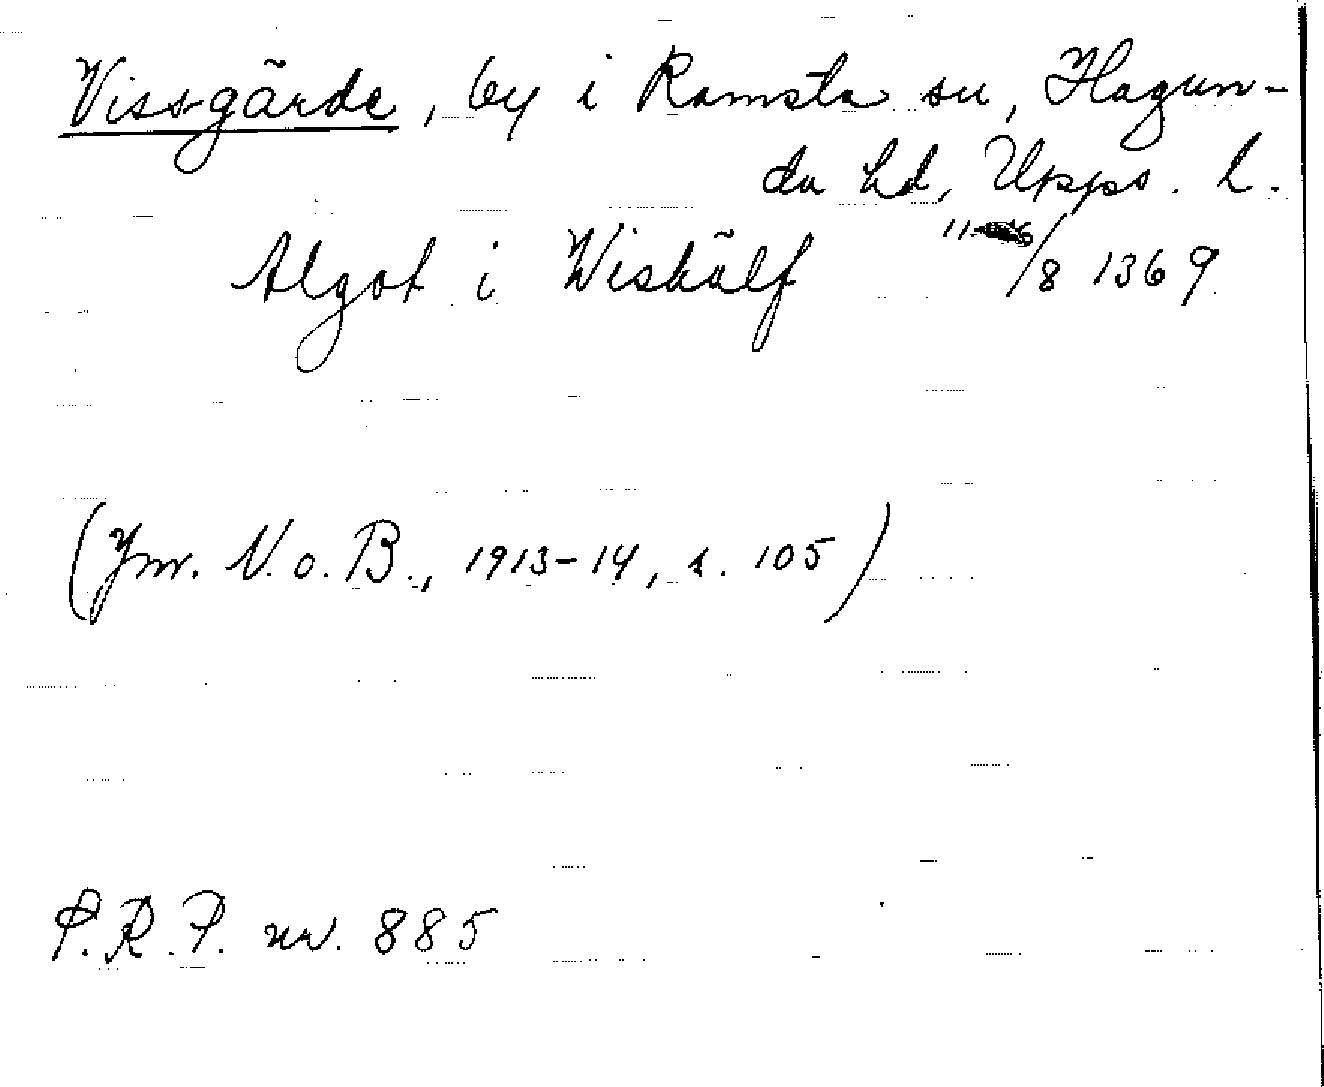 Vissgärde, by i Ramsta sn, Hagun-
da hd, Upps. l.
Algot i Wiskälf 11/8 1369
(Jmr. N.o.B., 1913-14, s. 105)
P.R.P. nr. 885